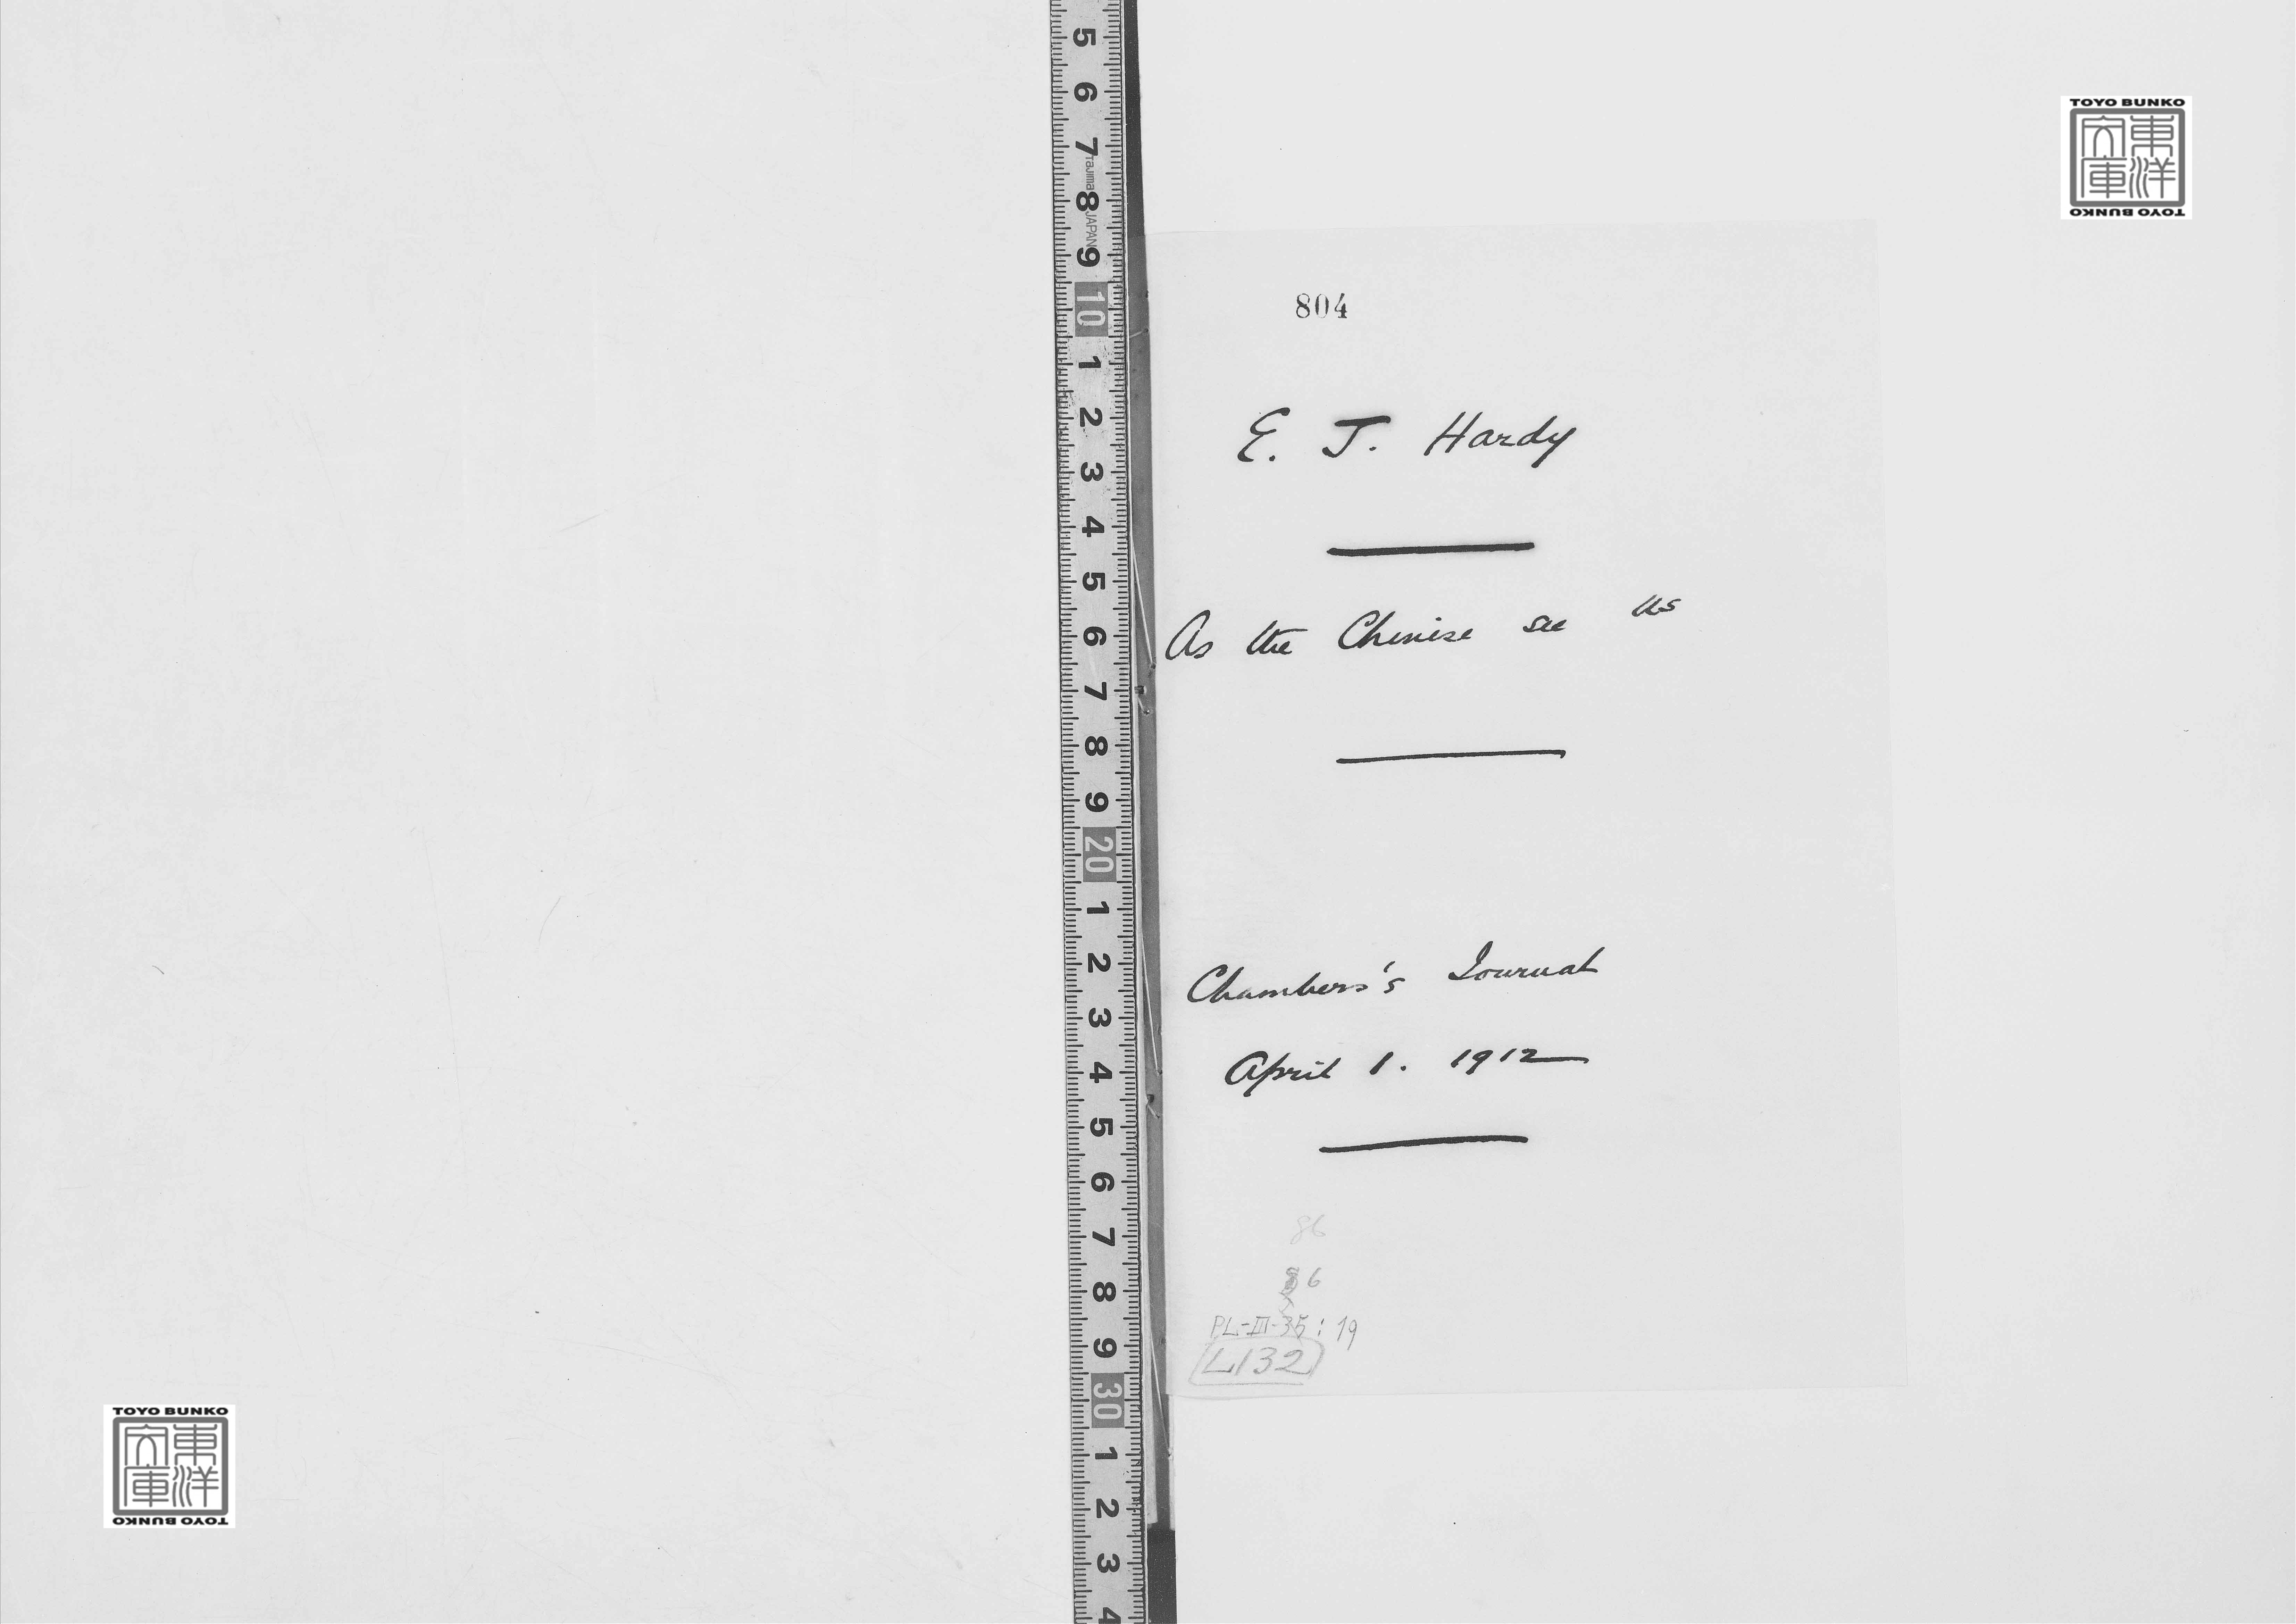 TOYO BUNKO
東洋
文庫
TOYO BUNKO
804
E. J. Hardy
As the Chinese see us
Chambers's Journal
April 1. 1912
86
86
PL-III-35:19
L132
5
6
7
Tajima
8
JAPAN
9
10
1
2
3
4
5
6
7
8
9
20
1
2
3
4
5
6
7
8
9
30
1
2
3
4
TOYO BUNKO
東洋
文庫
TOYO BUNKO